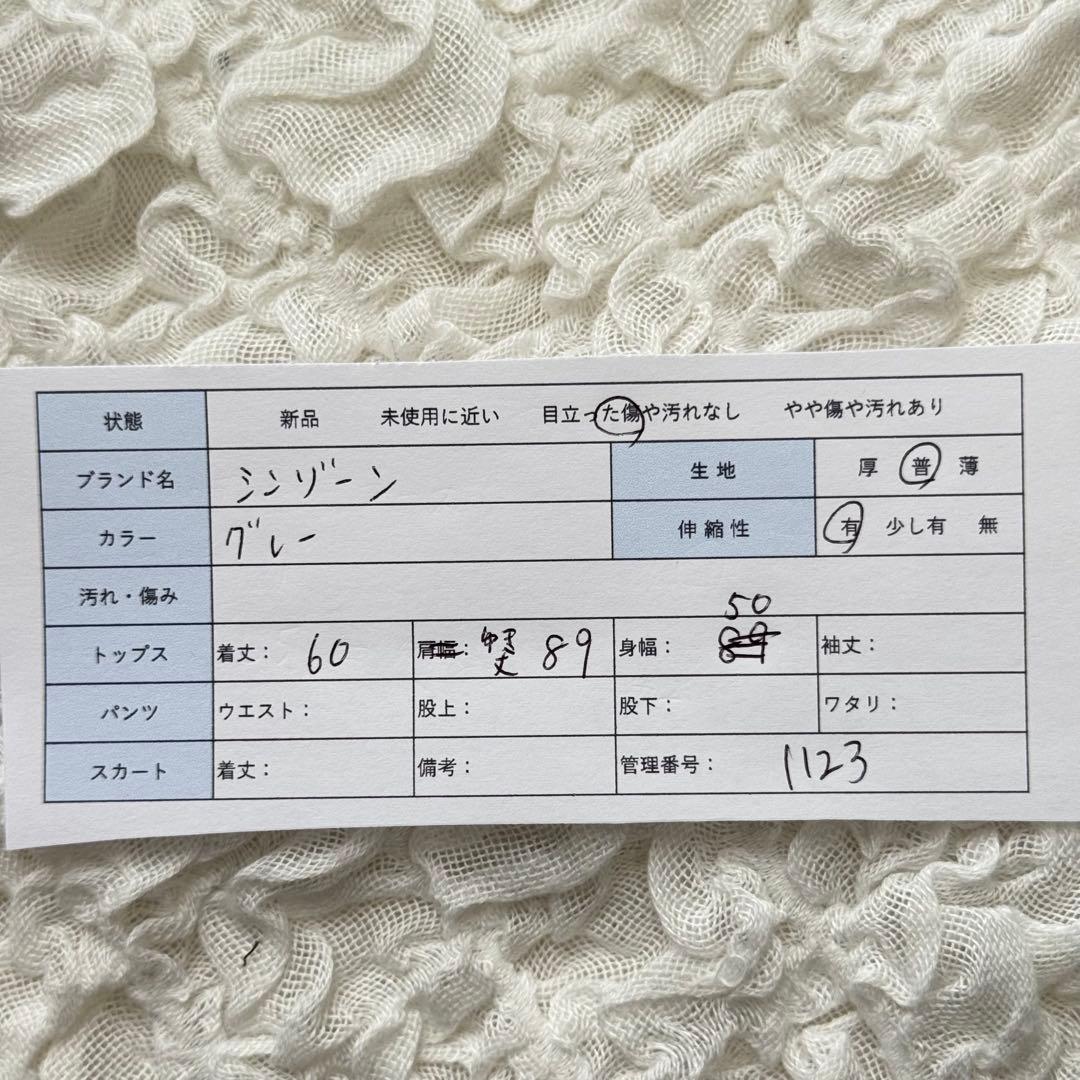 状態 新品 未使用に近い 目立った傷や汚れなし やや傷や汚れあり
ブランド名 シンゾーン 生地 厚 普 薄
カラー グレー 伸縮性 有 少し有 無
汚れ・傷み
50
トップス 着丈： 60 肩幅： ゆき丈 89 身幅： 89 袖丈：
パンツ ウエスト： 股上： 股下： ワタリ：
スカート 着丈： 備考： 管理番号： 1123